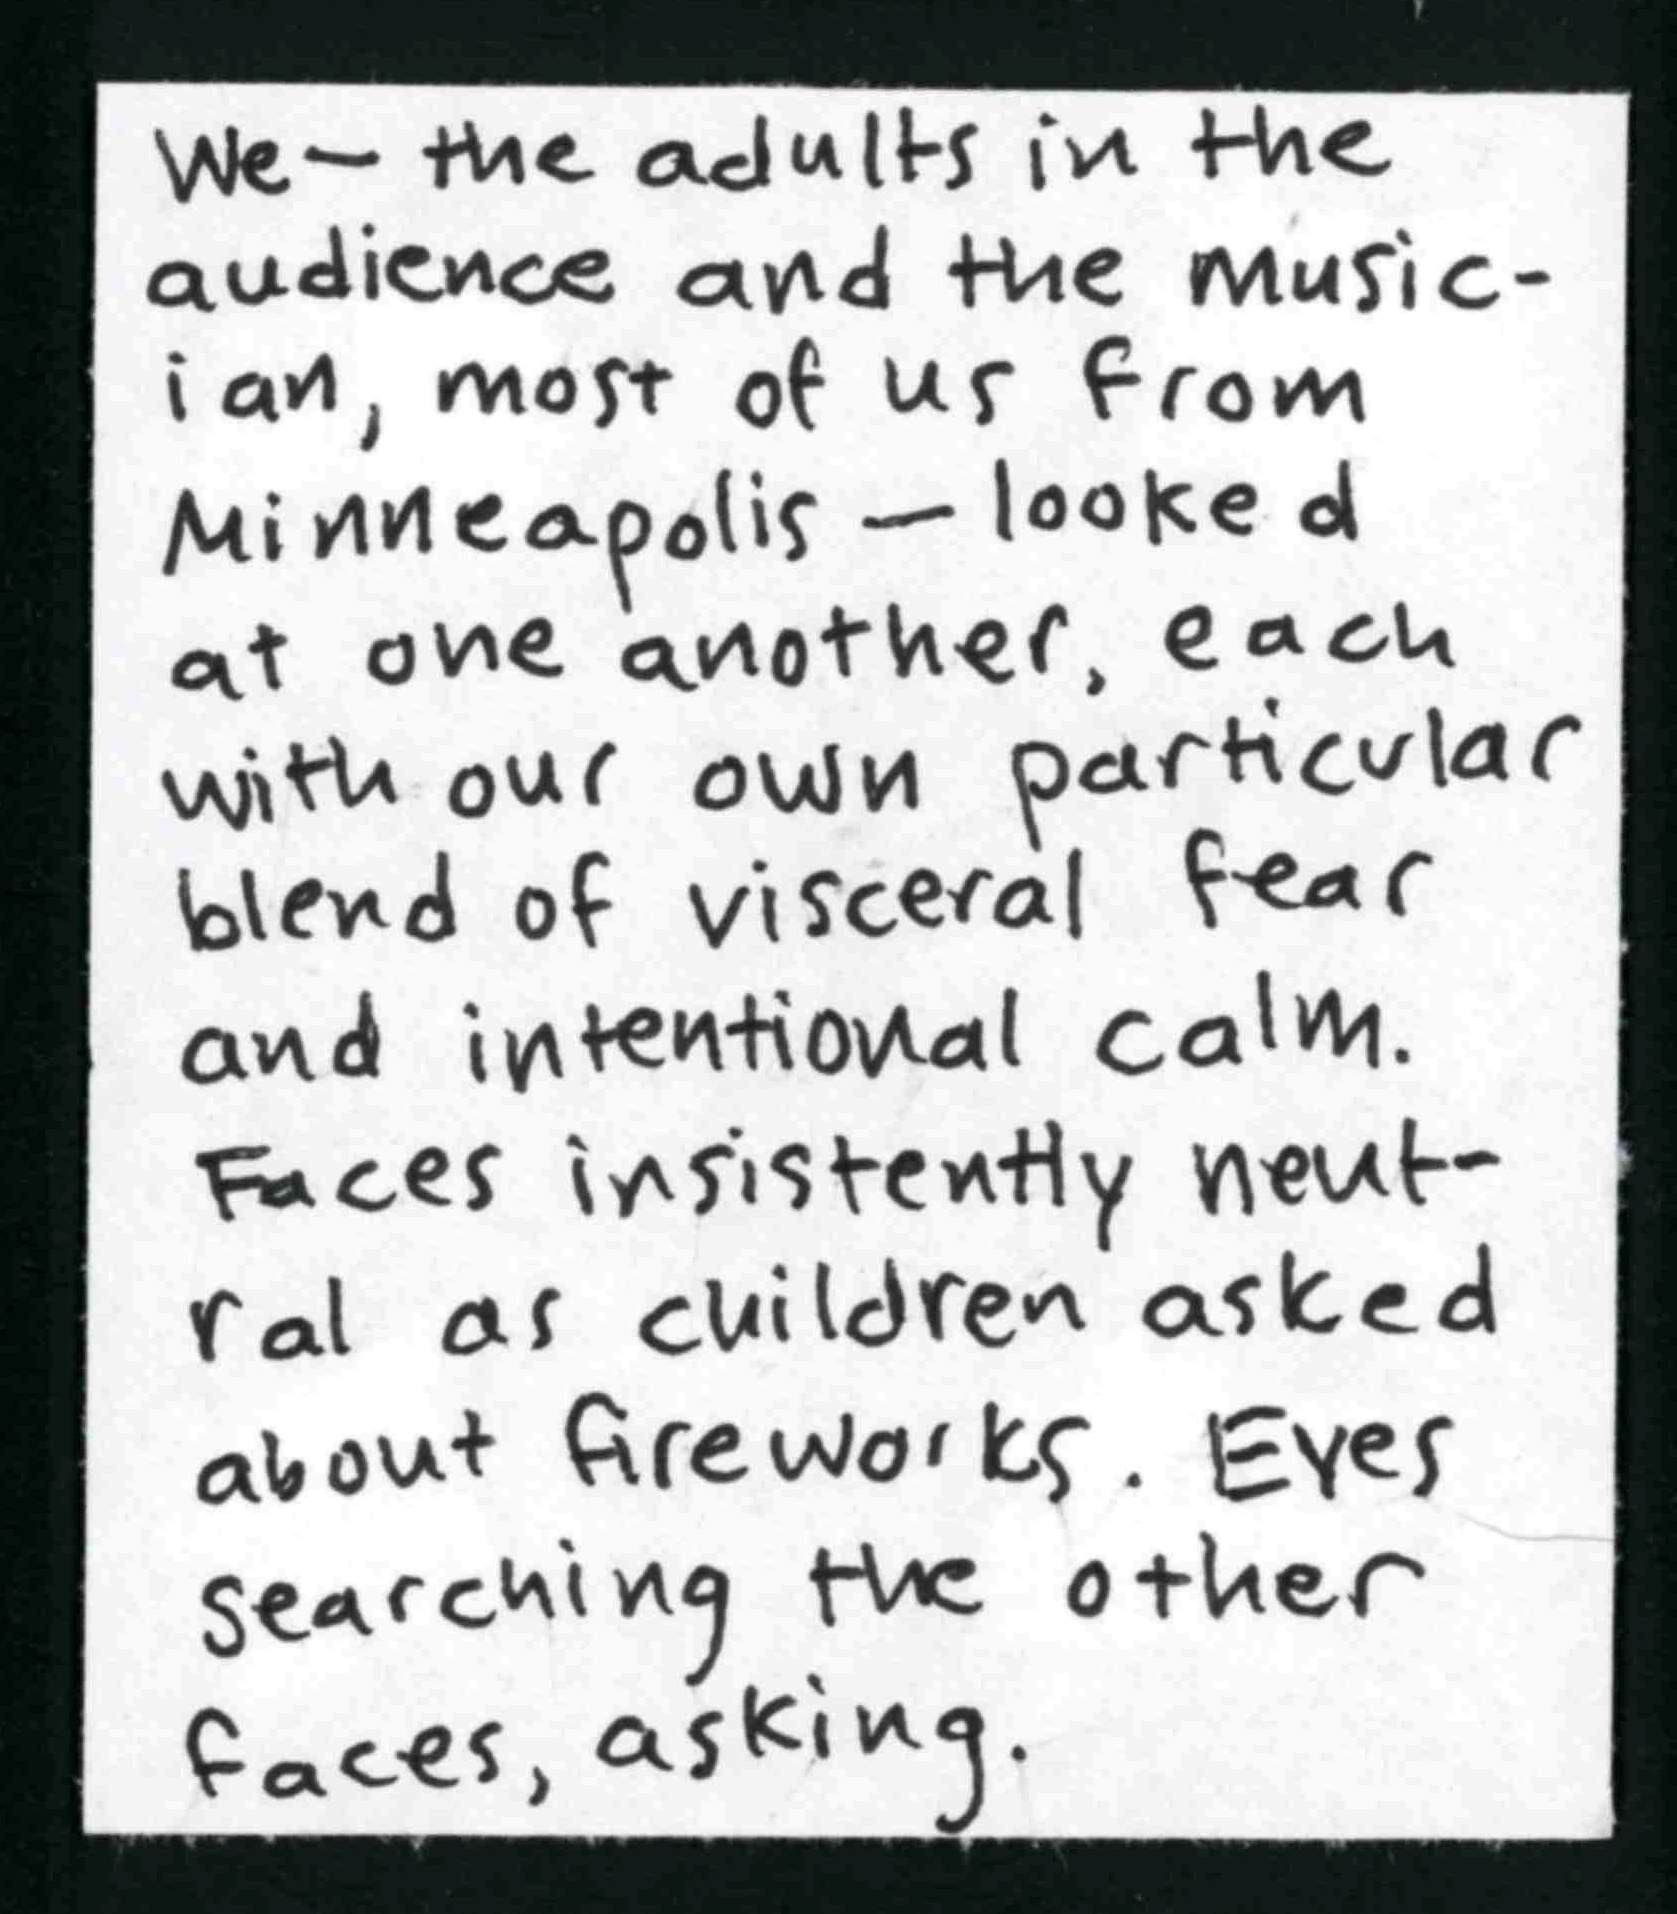 We — the adults in the
audience and the music-
ian, most of us from
Minneapolis — looked
at one another, each
with our own particular
blend of visceral fear
and intentional calm.
Faces insistently neut-
ral as children asked
about fireworks. Eyes
searching the other
faces, asking.